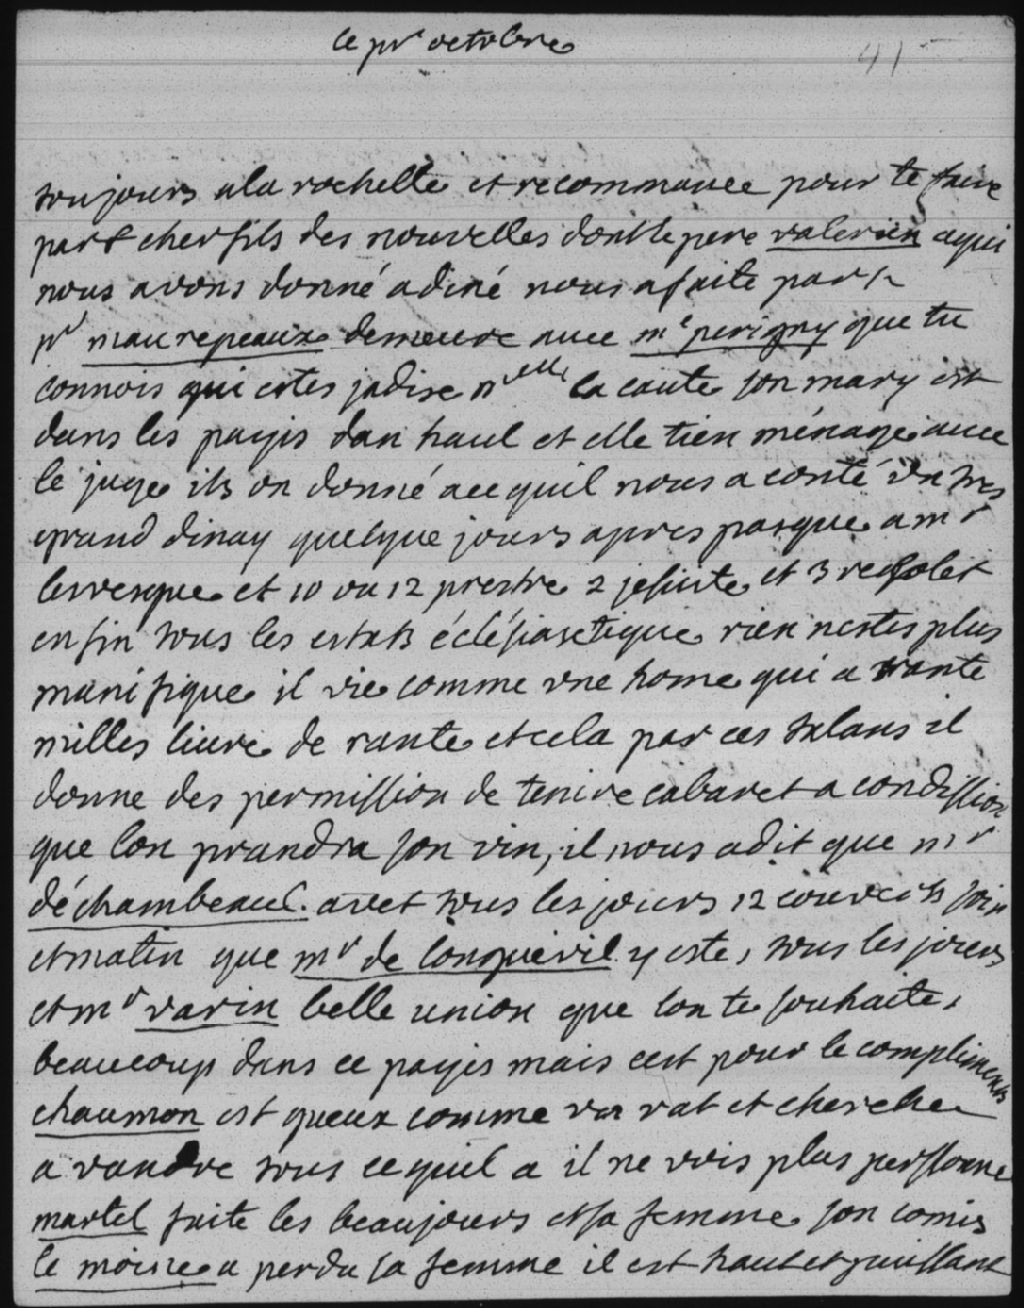 le pr octobre
41
toujours ala rochelle et recommance pour te faire
part cher fils des nouvelles dont le pere valerien aqui
nous avons donné a diné nous a faite part
mr maurepeaux demeure avec me perigny que tu
connois qui estes jadise melle la caute son mary est
dans les payis dan haul et elle tien ménage avec
le juge ils on donné ace quil nous a conté un tres
grand dinay quelque jours apres pasque a mr
levesque et 10 ou 12 prestre 2 jesuite et 3 recolet
enfin tous les estats éclésiasetique rien nestes plus
manifique il vie comme une home qui a trante
milles livre de rante et cela par ces talans il
donne des permission de tenire cabaret a condission
que lon prandra son vin, il nous a dit que mr
déchambeaux avet tous les jours 12 couverts soir
et matin que mr de lonqueuil y este, tous les jours
et mr varin belle union que lon te souhaite,
beaucoup dans ce payis mais cest pour le compliments
chaumon est queux comme un rat et cherche
a vandre tous ce quil a il ne vois plus personne
martel faite les beaujours et sa femme son comis
le moine a perdu sa femme il est haut et puissant